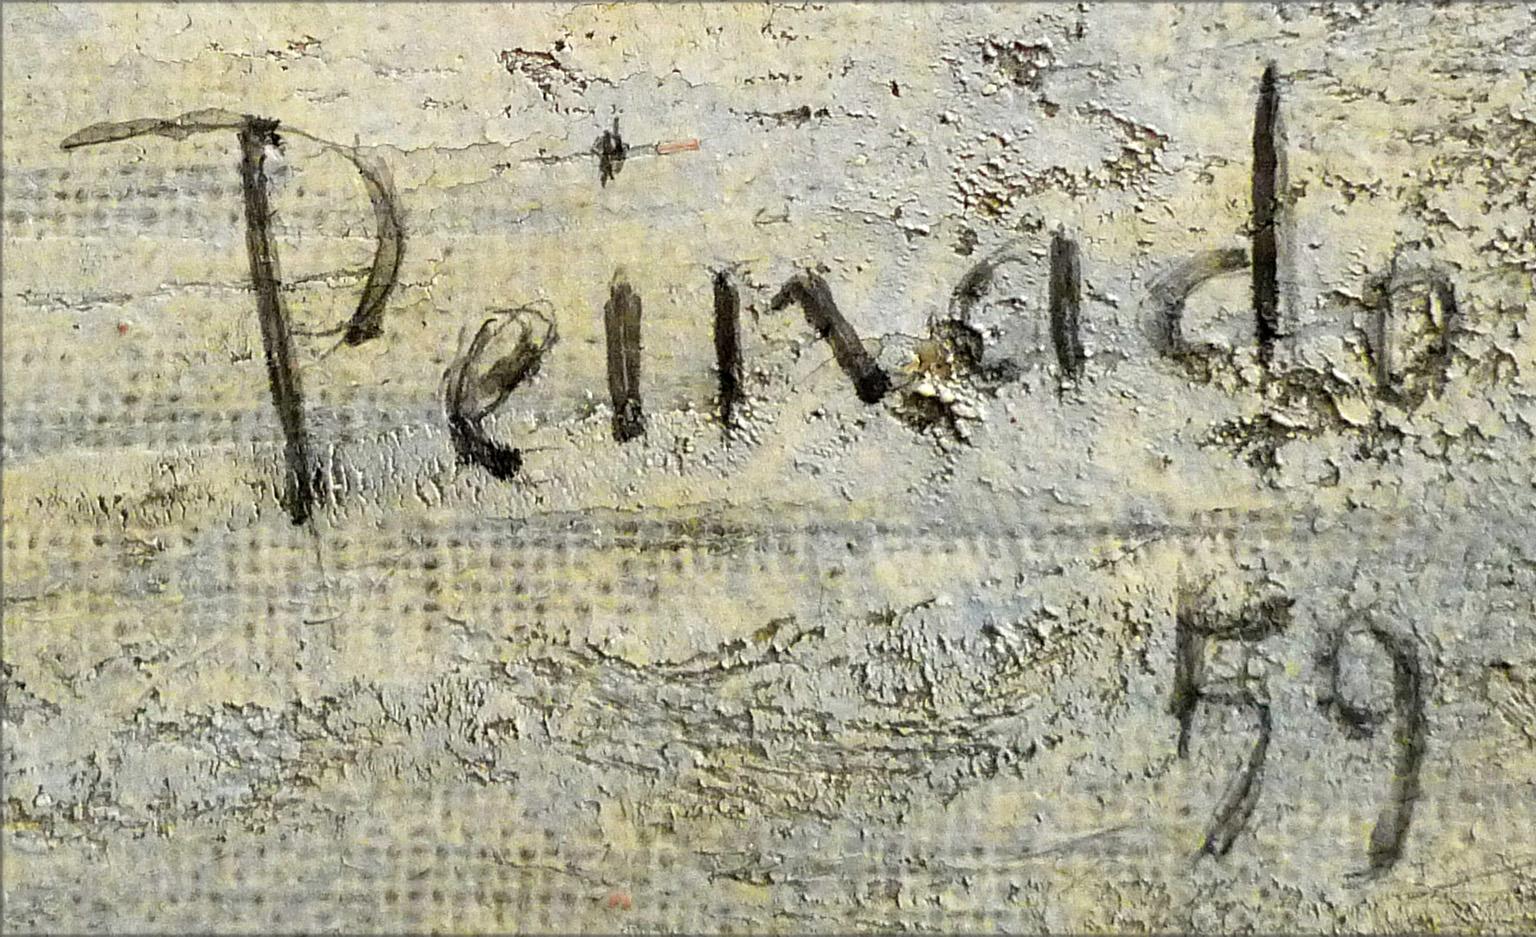 Peinado
59